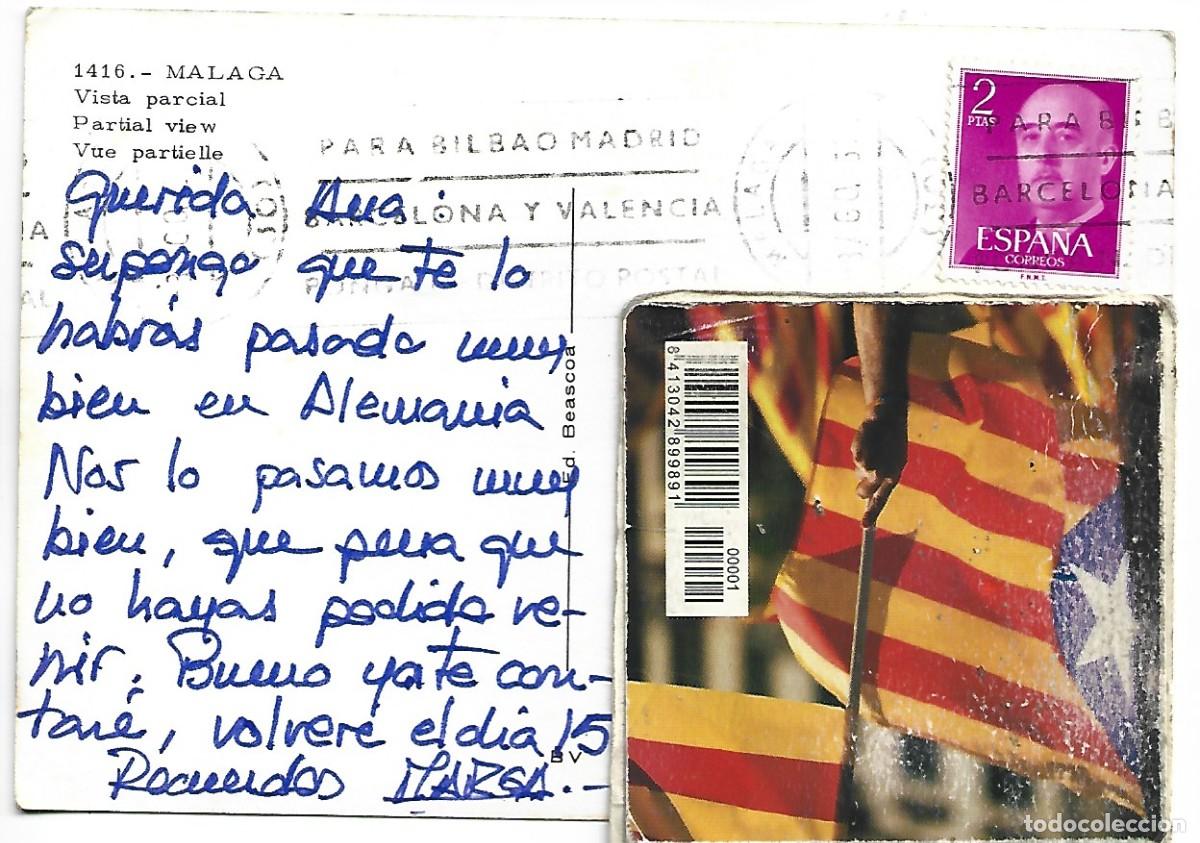 1416.- MALAGA
Vista parcial
Partial view
Vue partielle
PARA BILBAO MADRID
BARCELONA Y VALENCIA
DISTRITO POSTAL
2
PTAS
ESPAÑA
CORREOS
F.N.M.T.
PARA B
BARCELONA
Querida Ana:
supongo que te lo
habrás pasado muy
bien en Alemania
Nos lo pasamos muy
bien, que pena que
no hayas podido ve-
nir. Bueno ya te con-
taré, volveré el día 15
Recuerdos
Ed. Beascoa
BV
8413042899891
00001
todocoleccion